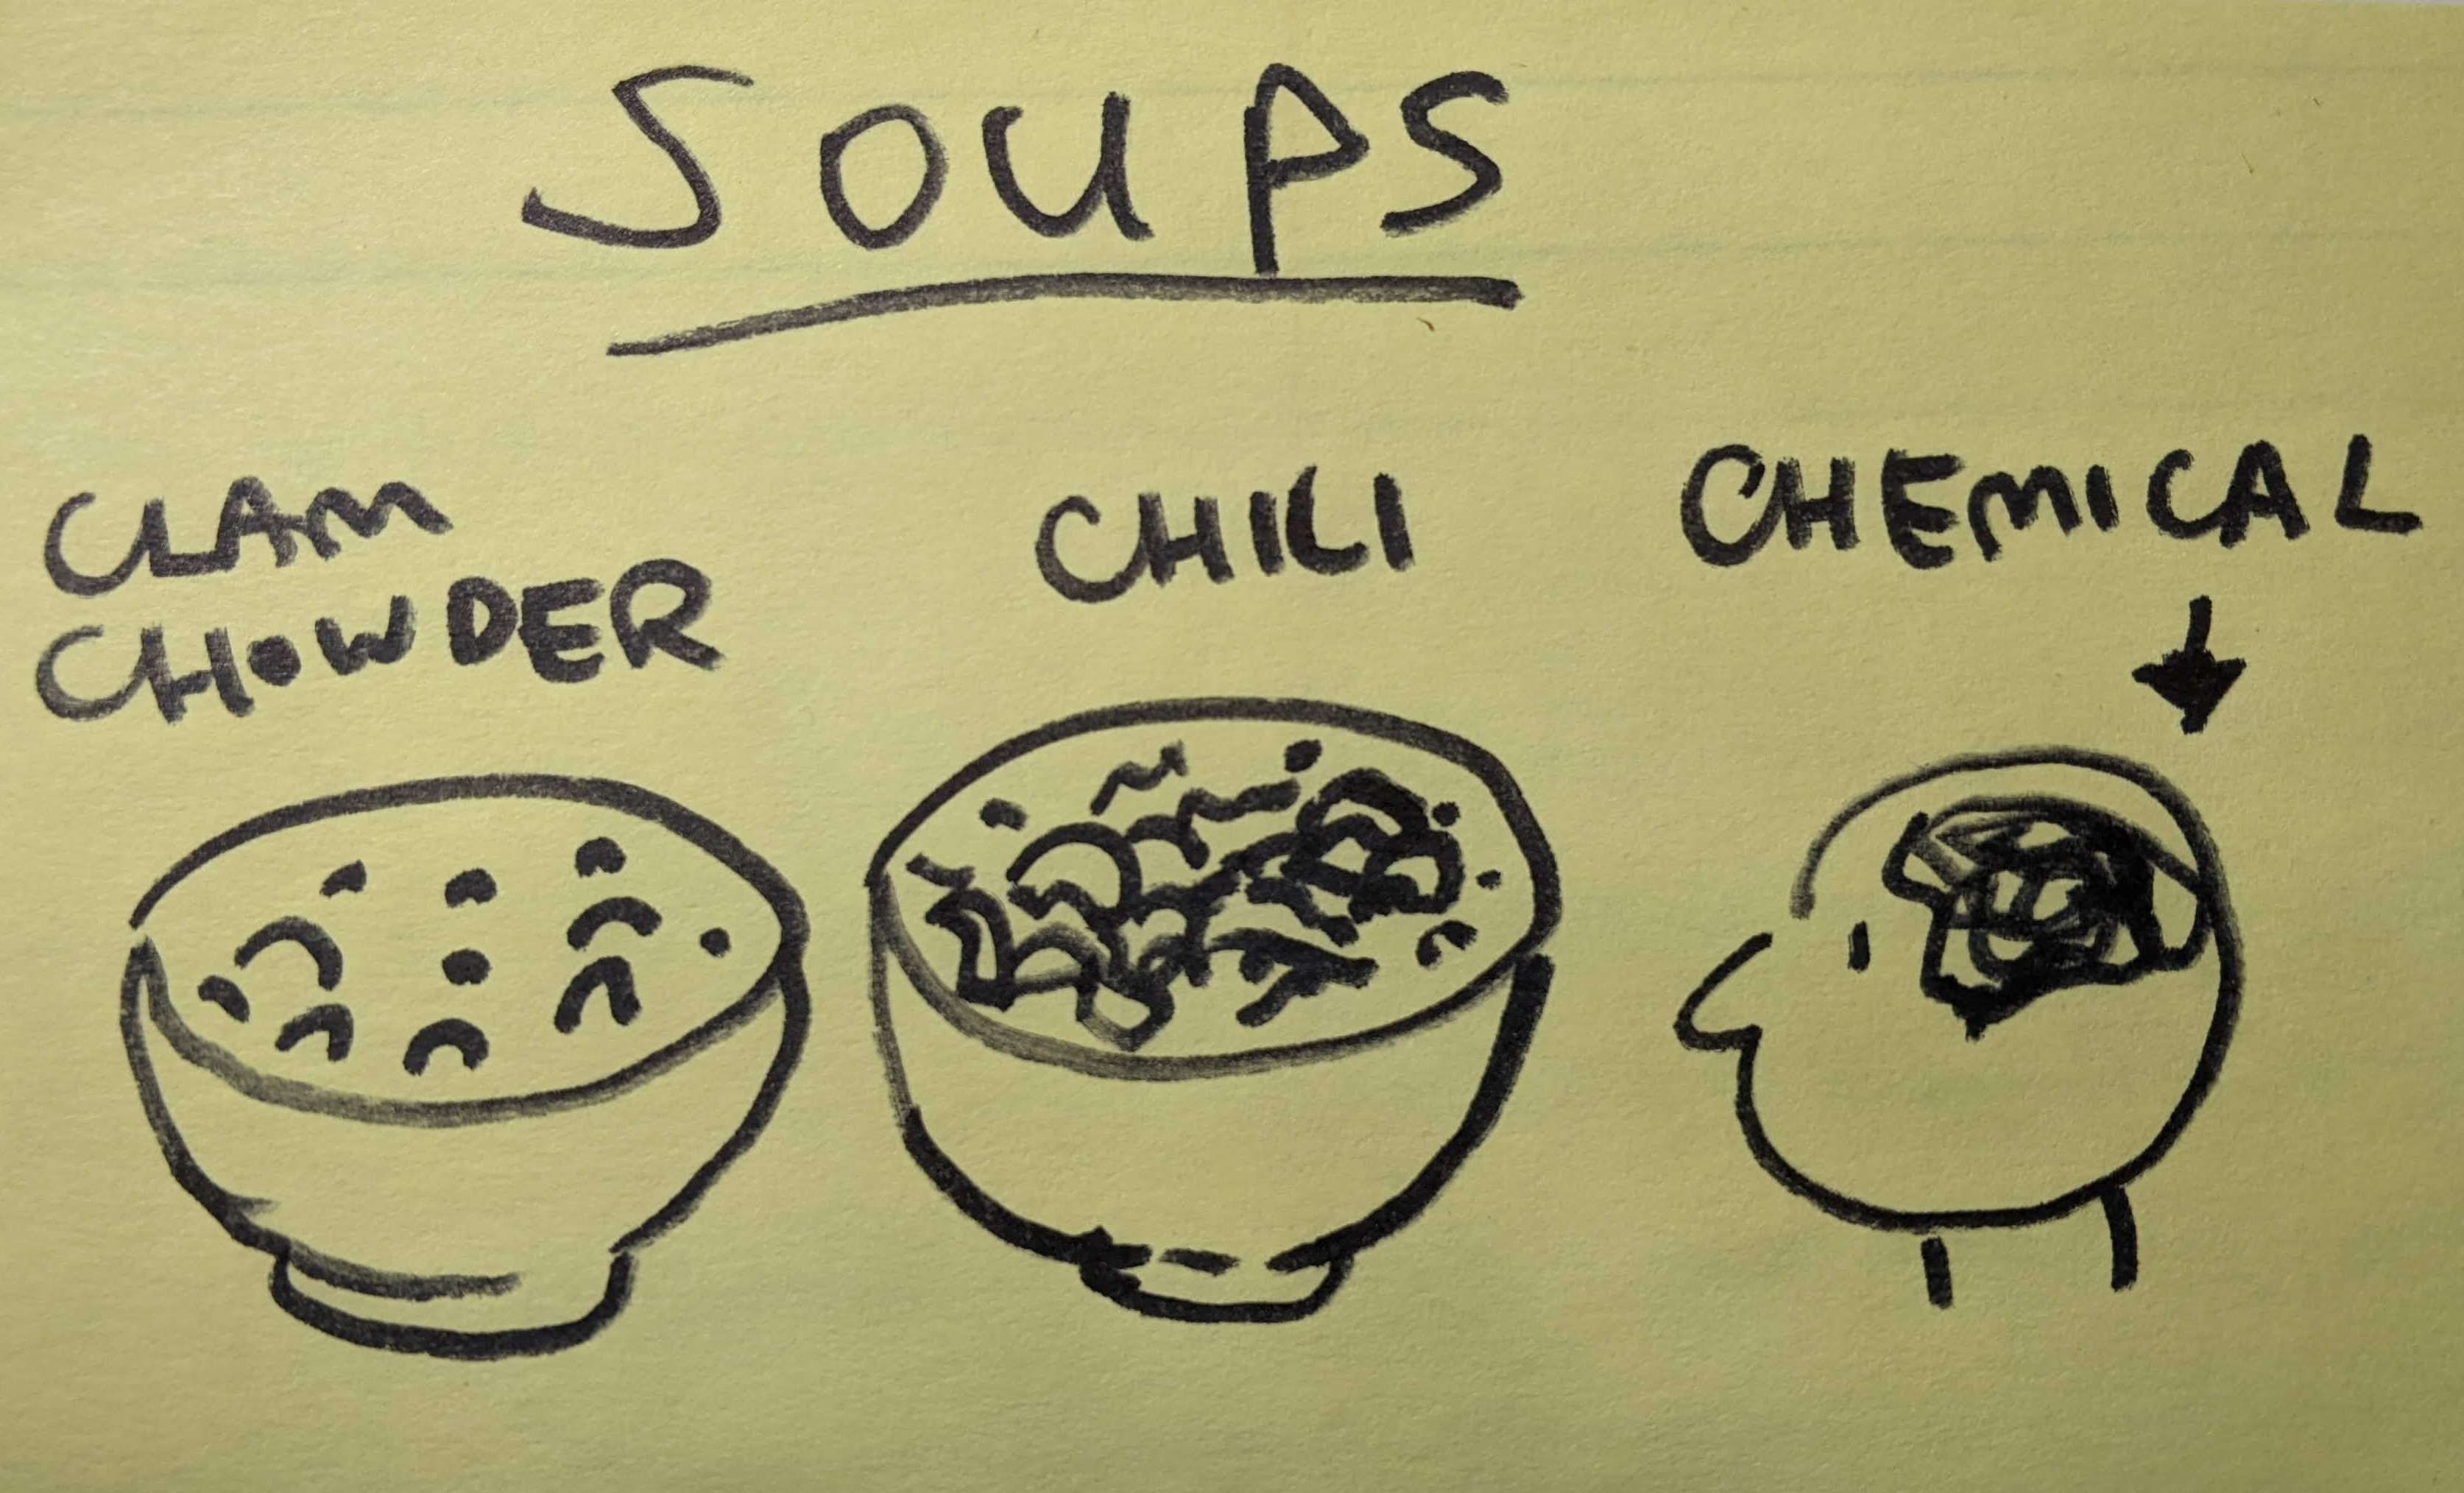 SOUPS
CLAM
CHOWDER
CHILI
CHEMICAL